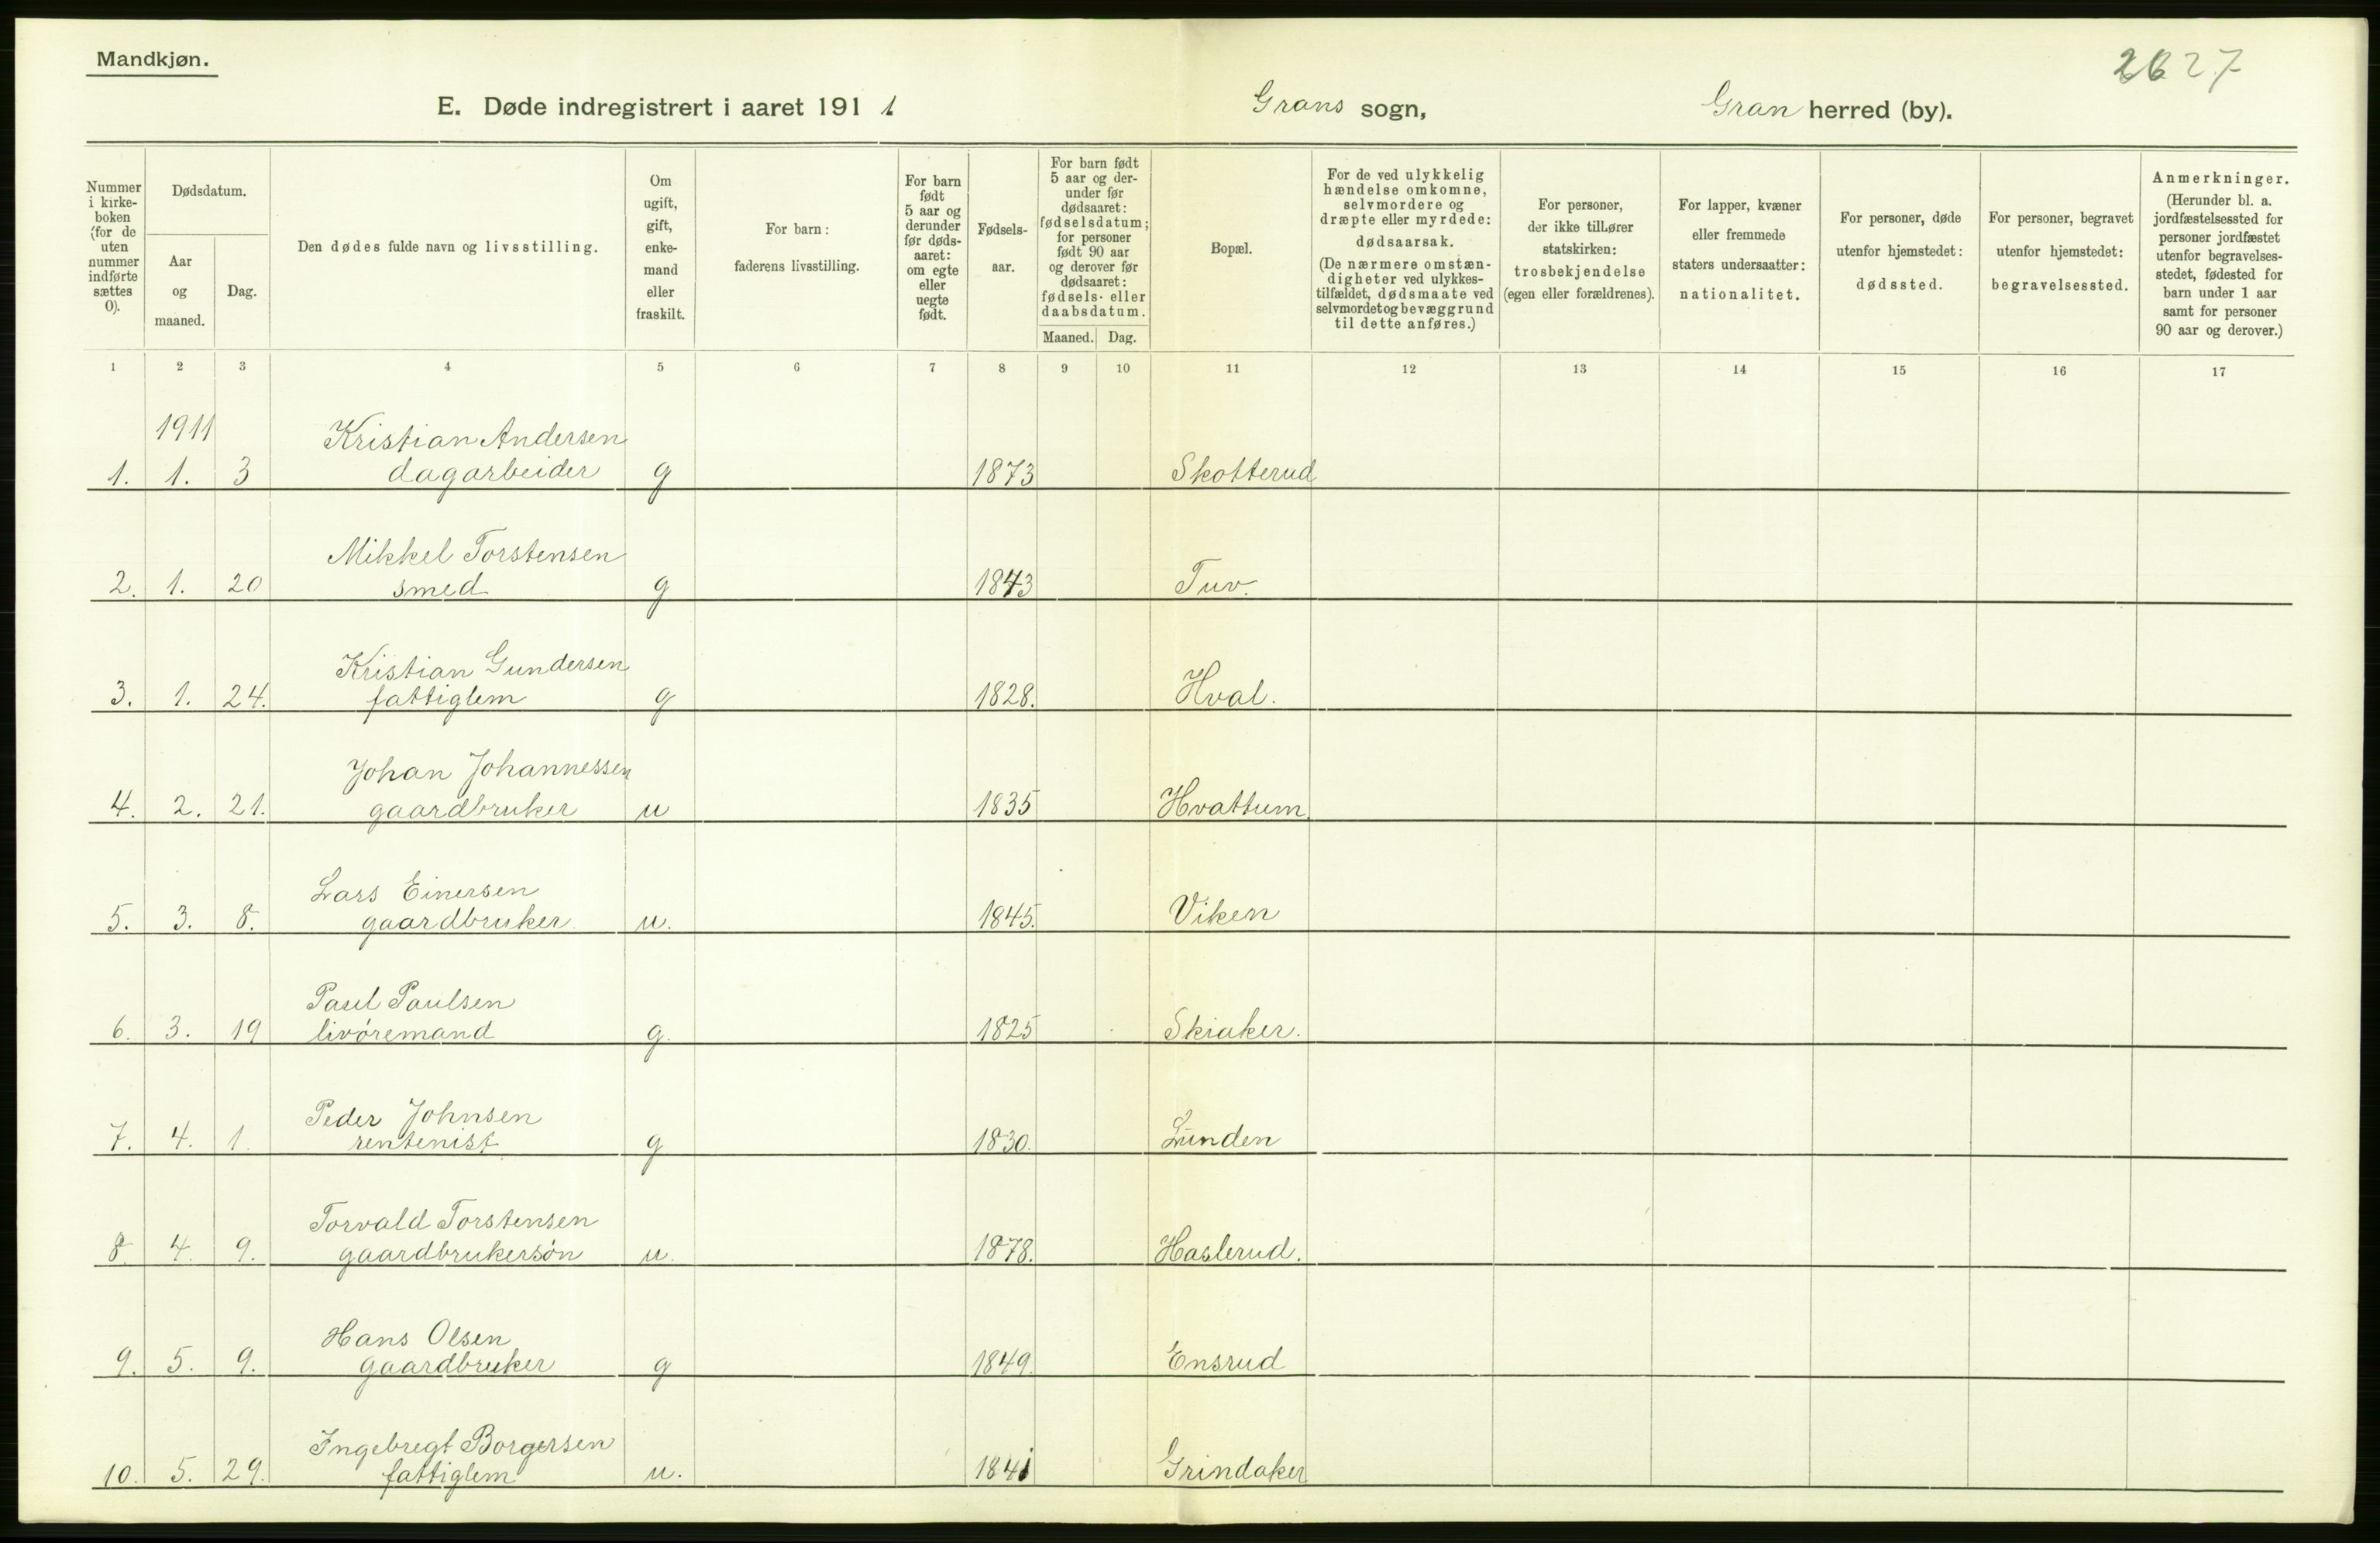 Mandkjøn.
2627
E. Døde indregistrert i aaret 1911 Grans sogn, Gran herred (by).
Nummer i kirke-boken (for de uten nummer indførte sættes 0).
Dødsdatum.
Aar og maaned.
Dag.
Den dødes fulde navn og livsstilling.
Om ugift, gift, enke-mand eller fraskilt.
For barn: faderens livsstilling.
For barn født 5 aar og derunder før døds-aaret: om egte eller uegte født.
Fødsels-aar.
For barn født 5 aar og der-under før dødsaaret: fødselsdatum; for personer født 90 aar og derover før dødsaaret: fødsels- eller daabsdatum.
Maaned. Dag.
Bopæl.
For de ved ulykkelig hændelse omkomne, selvmordere og dræpte eller myrdede: dødsaarsak. (De nærmere omstæn-digheter ved ulykkes-tilfældet, dødsmaate ved selvmord et og bevæggrund til dette anføres.)
For personer, der ikke tilhører statskirken: trosbekjendelse (egen eller forældrenes).
For lapper, kvæner eller fremmede staters undersaatter: nationalitet.
For personer, døde utenfor hjemstedet: dødssted.
For personer, begravet utenfor hjemstedet: begravelsessted.
Anmerkninger. (Herunder bl. a. jordfæstelsessted for personer jordfæstet utenfor begravelses-stedet, fødested for barn under 1 aar samt for personer 90 aar og derover.)
1 2 3 4 5 6 7 8 9 10 11 12 13 14 15 16 17
1911 Kristian Andersen
1. 1. 3 dagarbeider g 1873 Skotterud
Mikkel Torstensen
2. 1. 20 smed g 1843 Tuv.
Kristian Gundersen
3. 1. 24. fattiglem g 1828. Hval.
Johan Johannessen
4. 2. 21. gaardbruker u 1835 Hvattum.
Lars Einersen
5. 3. 8. gaardbruker u. 1845. Viken
Paul Paulsen
6. 3. 19 livøremand g. 1825 Skiaker.
Peder Johnsen
7. 4. 1. rentenist g 1830. Lunden
Torvald Torstensen
8 4. 9. gaardbrukersøn u. 1878. Haslerud.
Hans Olsen
9. 5. 9. gaardbruker g 1849. Ensrud
Ingebregt Borgersen
10. 5. 29. fattiglem u. 1841 Grindaker